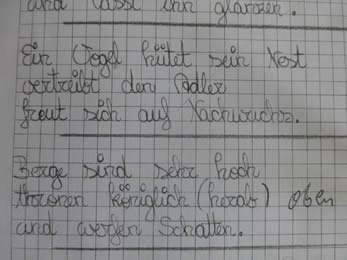 und lässt ihn glänzen.
Ein Vogel hütet sein Nest
vertreibt den Adler
freut sich auf Nachwuchs.
Berge sind sehr hoch
thronen königlich (herab) oben
und werfen Schatten.